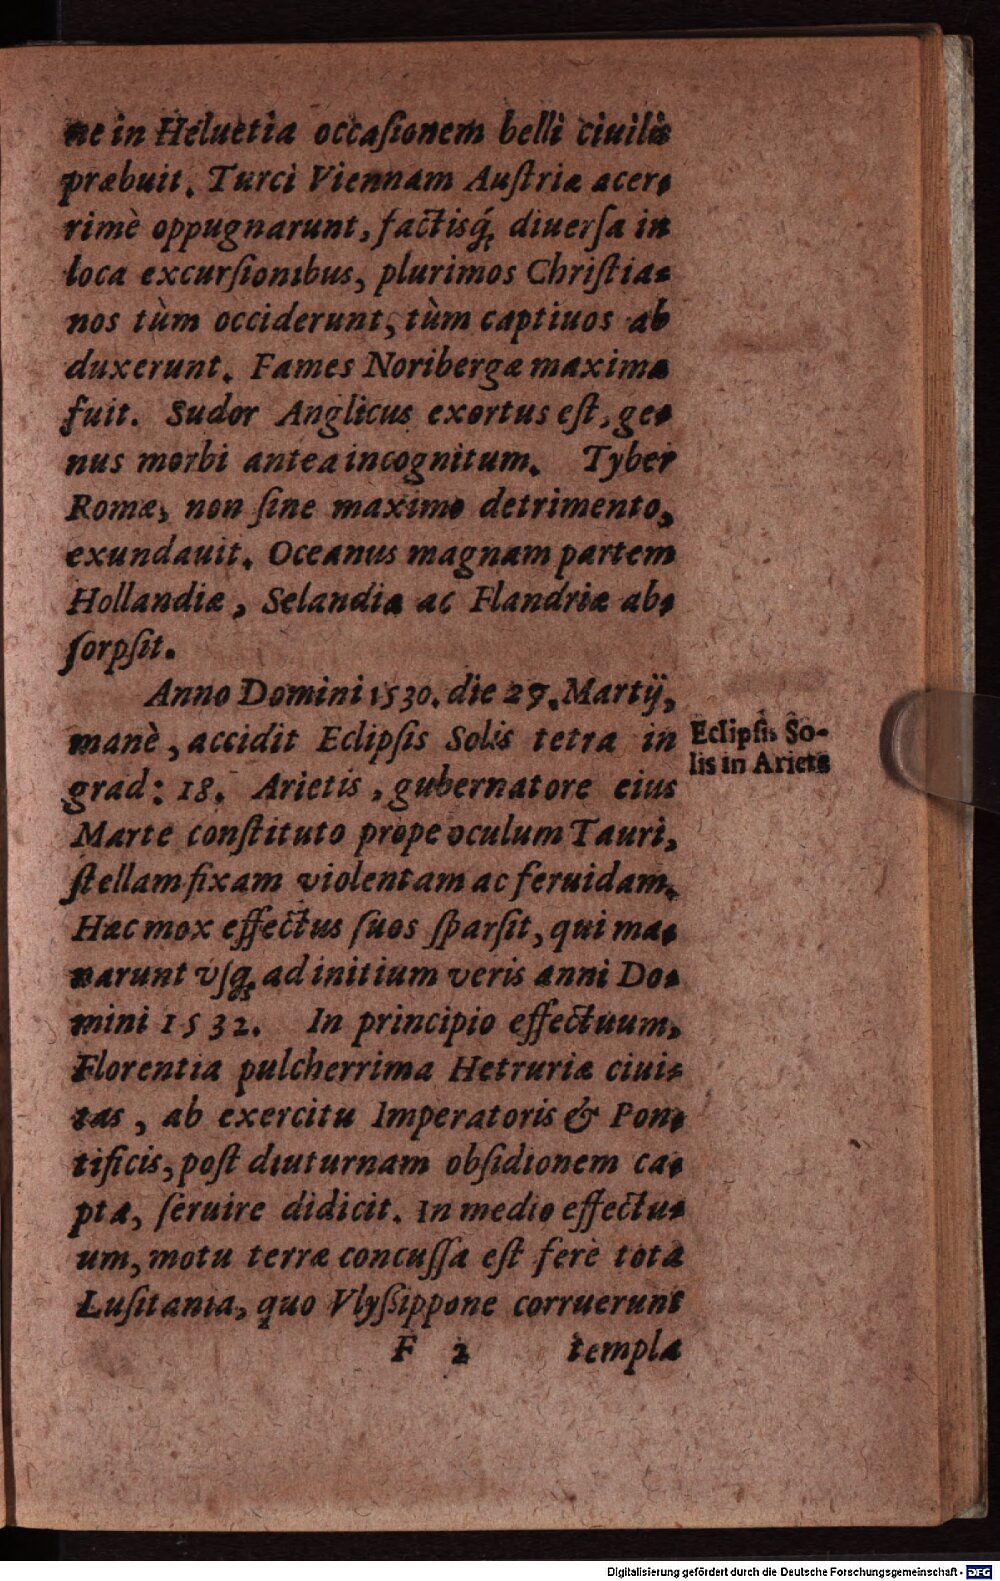 ne in Heluetia occaſionem belli ciuilis
præbuit. Turci Viennam Auſtriæ acer-
rimè oppugnarunt, factisq́; diuerſa in
loca excurſionibus, plurimos Chriſtia-
nos tùm occiderunt, tùm captiuos ab
duxerunt. Fames Noribergæ maxima
fuit. Sudor Anglicus exortus eſt, ge-
nus morbi antea incognitum. Tyber
Romæ, non ſine maximo detrimento,
exundauit. Oceanus magnam partem
Hollandiæ, Selandiæ ac Flandriæ ab-
ſorpſit.
Anno Domini 1530. die 29. Martij,
manè, accidit Eclipſis Solis tetra in
grad: 18. Arietis, gubernatore eius
Marte conſtituto prope oculum Tauri,
ſtellam fixam violentam ac feruidam.
Hæc mox effectus ſuos ſparſit, qui ma-
narunt vſq; ad initium veris anni Do-
mini 1532. In principio effectuum,
Florentia pulcherrima Hetruriæ ciui-
tas, ab exercitu Imperatoris & Pon-
tificis, poſt diuturnam obſidionem ca-
pta, ſeruire didicit. In medio effectu-
um, motu terræ concuſſa eſt ferè tota
Luſitania, quo Vlyſsippone corruerunt
F 2 templa
Eclipſis So-
lis in Ariete
Digitalisierung gefördert durch die Deutsche Forschungsgemeinschaft - DFG